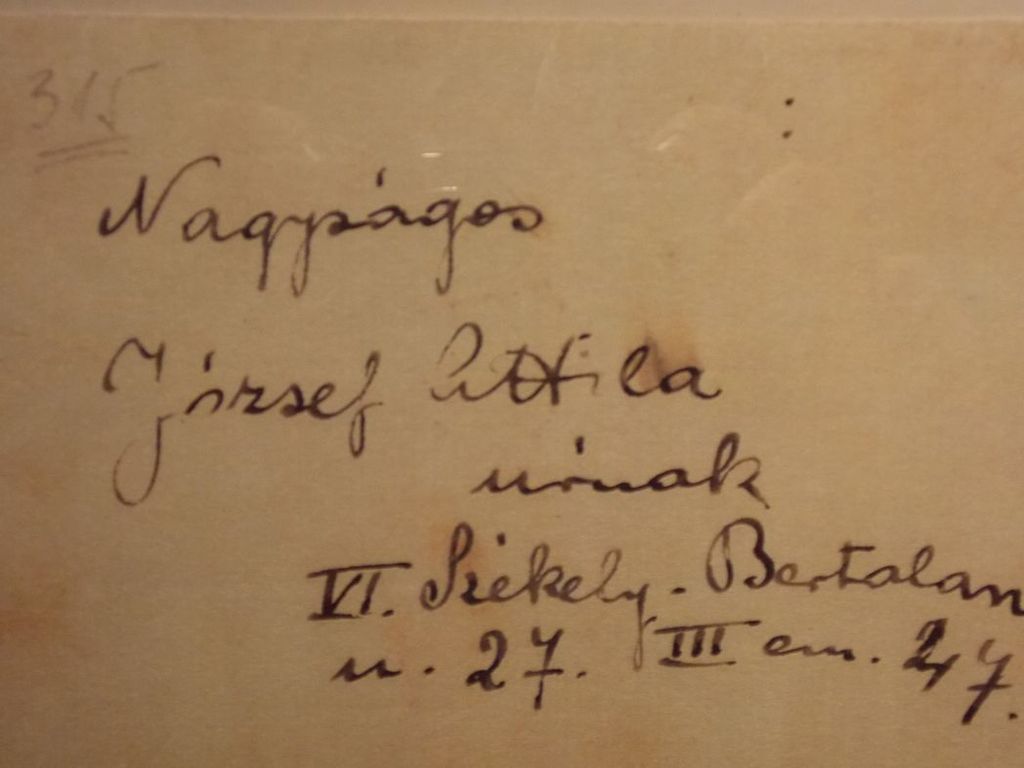 315
Nagyságos
József Attila
urnak
VI. Székely-Bertalan
u. 27. III em. 27.